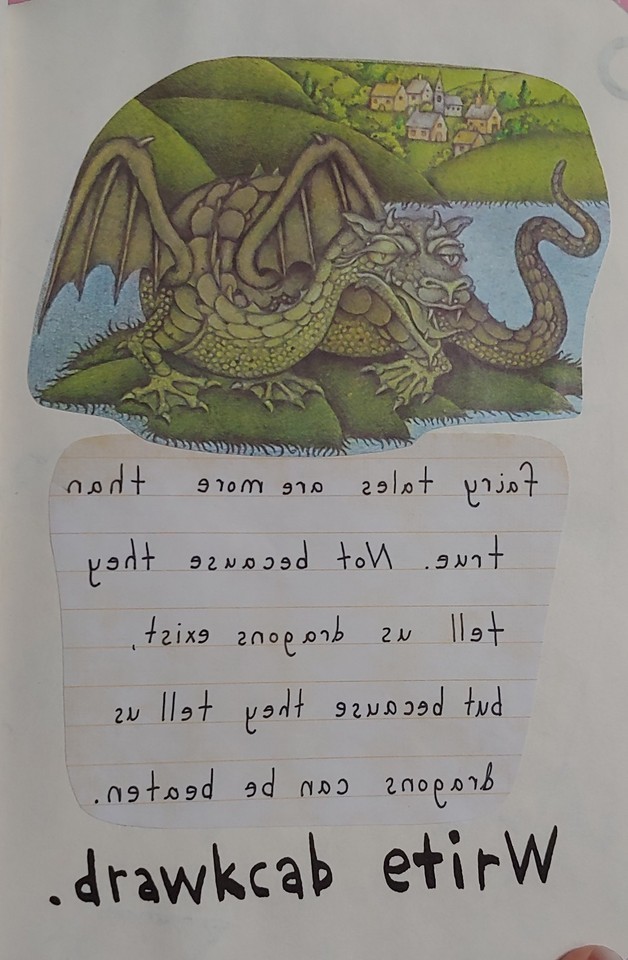 Fairy tales are more than
true. Not because they
tell us dragons exist,
but because they tell us
dragons can be beaten.
.drawkcab etirW